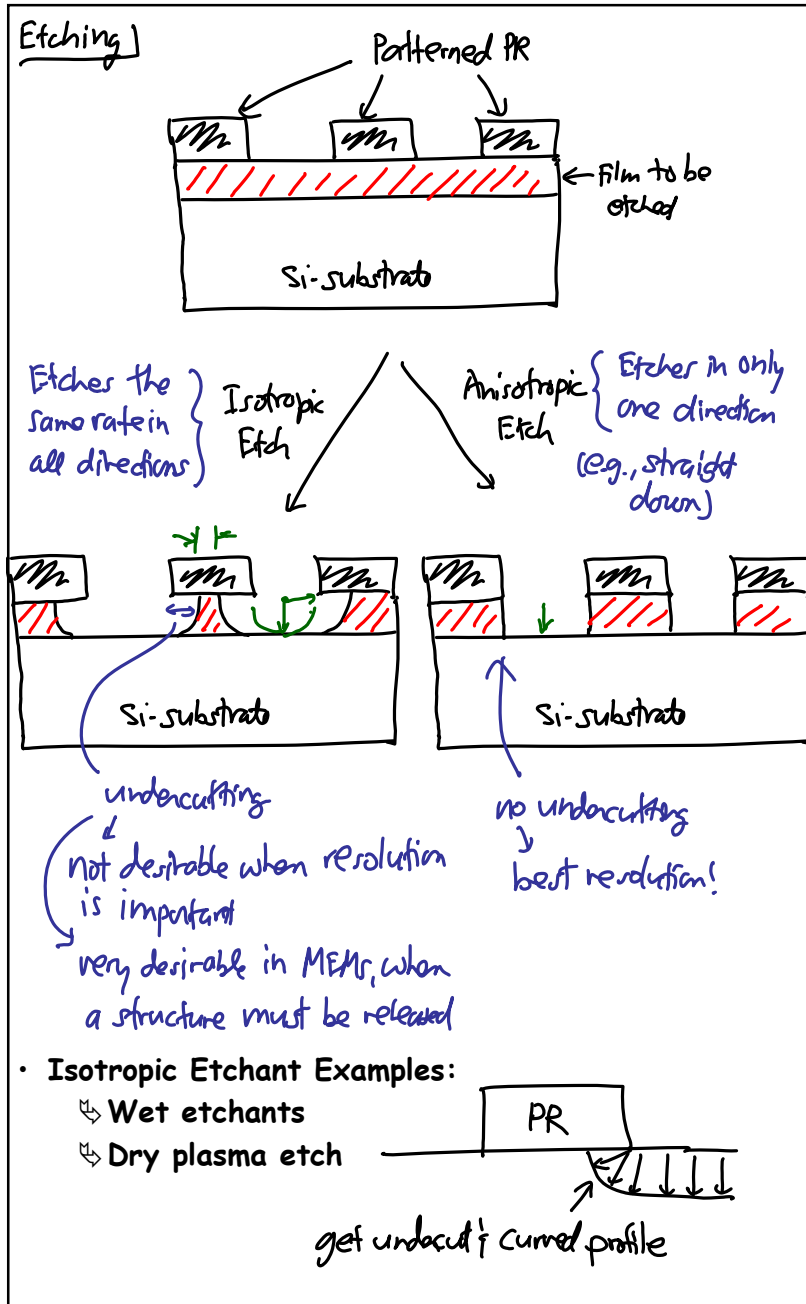 Etching
Patterned PR
Film to be
etched
Si-substrate
Etches the
same rate in
all directions
Isotropic
Etch
Anisotropic
Etch
Etches in only
one direction
(e.g., straight
down)
Si-substrate
Si-substrate
undercutting
not desirable when resolution
is important
very desirable in MEMs, when
a structure must be released
no undercutting
best resolution!
• Isotropic Etchant Examples:
Wet etchants
Dry plasma etch
PR
get undercut & curved profile